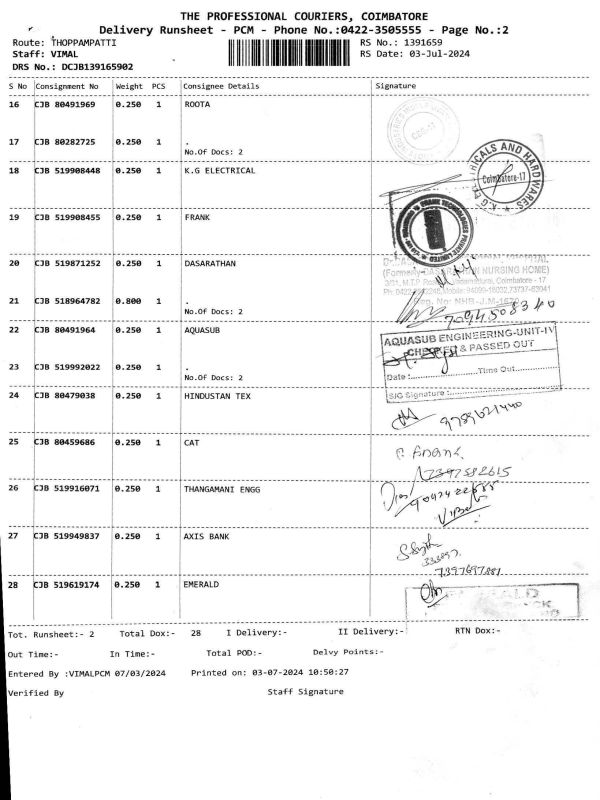 THE PROFESSIONAL COURIERS, COIMBATORE
Delivery Runsheet - PCM - Phone No.:0422-3505555 - Page No.:2
Route: THOPPAMPATTI
RS No.: 1391659
Staff: VIMAL
RS Date: 03-Jul-2024
DRS No.: DCJB139165902
S No Consignment No Weight PCS Consignee Details Signature
16 CJB 80491969 0.250 1 ROOTA
17 CJB 80282725 0.250 1 .
No.Of Docs: 2
18 CJB 519908448 0.250 1 K.G ELECTRICAL
Coimbatore-17
19 CJB 519908455 0.250 1 FRANK
20 CJB 519871252 0.250 1 DASARATHAN
NURSING HOME)
Coimbatore - 17
21 CJB 518964782 0.800 1 .
No.Of Docs: 2
7094508340
22 CJB 80491964 0.250 1 AQUASUB
AQUASUB ENGINEERING-UNIT-IV
CHECKED & PASSED OUT
23 CJB 519992022 0.250 1 .
No.Of Docs: 2
Date :...............Time Out...............
SJG Signature :...............
24 CJB 80479038 0.250 1 HINDUSTAN TEX
9789621440
25 CJB 80459686 0.250 1 CAT
P. Anand
7397582615
26 CJB 519916071 0.250 1 THANGAMANI ENGG
27 CJB 519949837 0.250 1 AXIS BANK
7397697881
28 CJB 519619174 0.250 1 EMERALD
Tot. Runsheet:- 2 Total Dox:- 28 I Delivery:- II Delivery:- RTN Dox:-
Out Time:- In Time:- Total POD:- Delvy Points:-
Entered By :VIMALPCM 07/03/2024 Printed on: 03-07-2024 10:50:27
Verified By Staff Signature